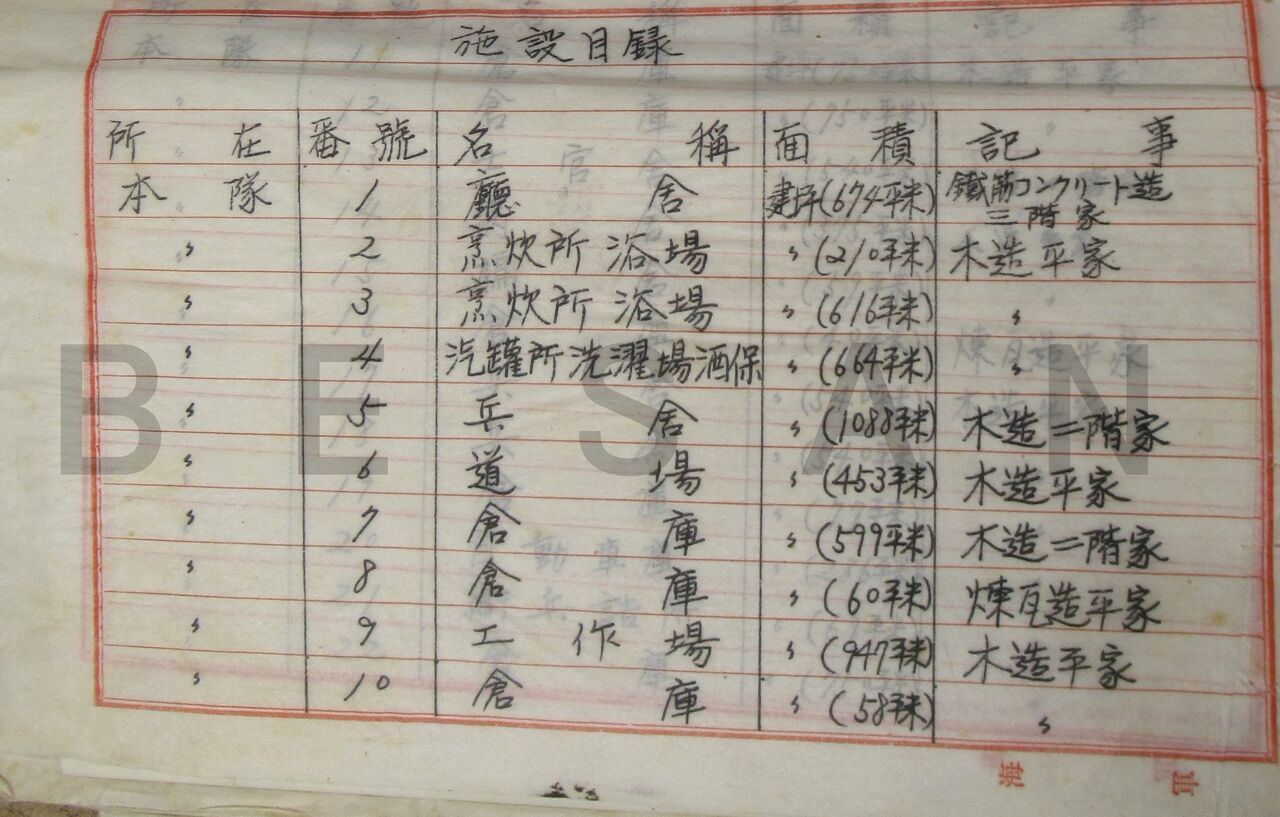 施設目録
所在 番號 名稱 面積 記事
本隊 1 廳舍 建坪(674平米) 鐵筋コンクリート造
三階家
〃 2 烹炊所浴場 〃(210平米) 木造平家
〃 3 烹炊所浴場 〃(616平米) 〃
〃 4 汽罐所洗濯場酒保 〃(664平米) 〃
〃 5 兵舍 〃(1088平米) 木造二階家
〃 6 道場 〃(453平米) 木造平家
〃 7 倉庫 〃(599平米) 木造二階家
〃 8 倉庫 〃(60平米) 煉瓦造平家
〃 9 工作場 〃(947平米) 木造平家
〃 10 倉庫 〃(58平米) 〃
海軍
BESAN